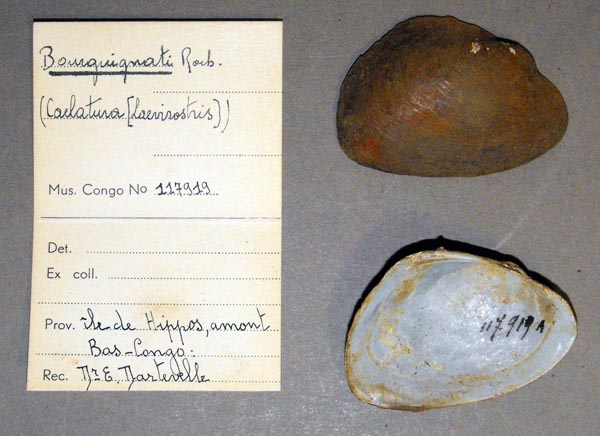 Bourguignati Roch.
(Caelatura [laevirostris])
Mus. Congo No 117919
Det.
Ex coll.
Prov. île de Hippos, amont
Bas-Congo:
Rec. Dr E. Dartevelle
117.919A